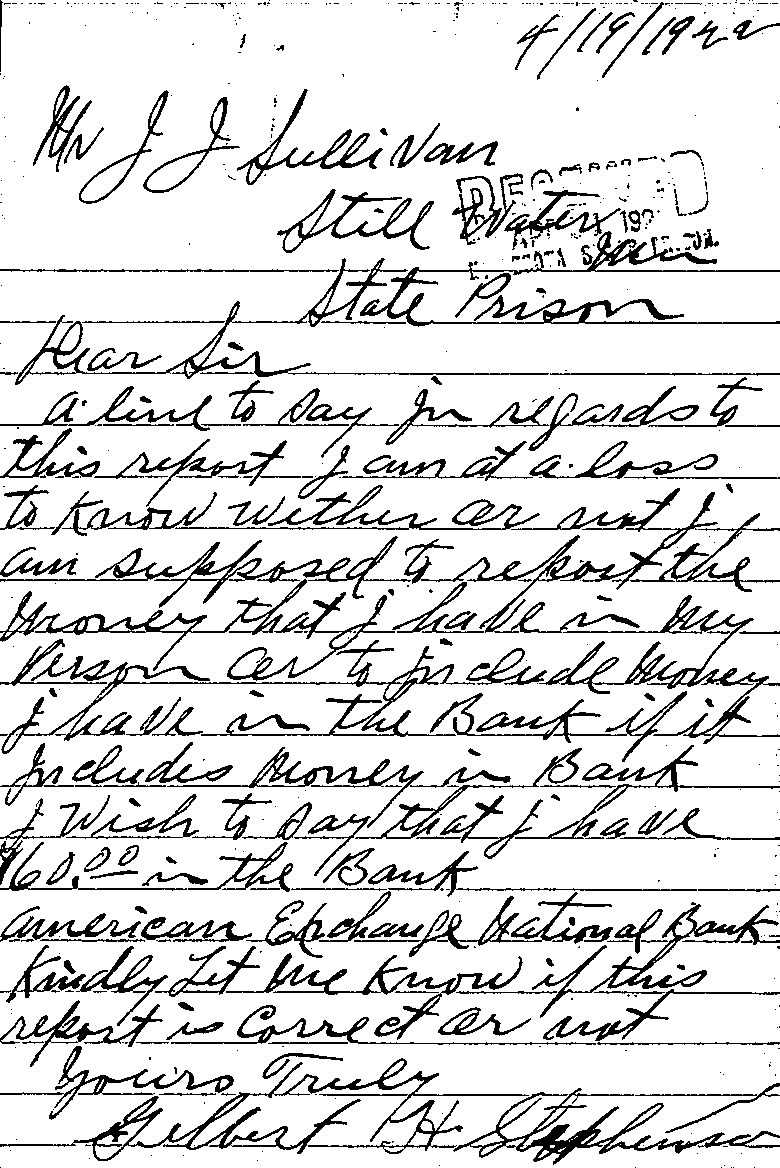 4/19/1922
Mr J J Sullivan
RECEIVED
Still Water
192
Minn
State Prison
Dear Sir
a line to say In regards to
this report I am at a loss
to Know wether or not I
am supposed to report the
Money that I have in My
Person or to Include Money
I have in the Bank if it
Includes Money in Bank
I Wish to say that I have
$60.00 in the Bank
American Exchange National Bank
Kindly Let Me Know if this
report is Correct or not
Yours Truly
Gilbert H. Stephenson